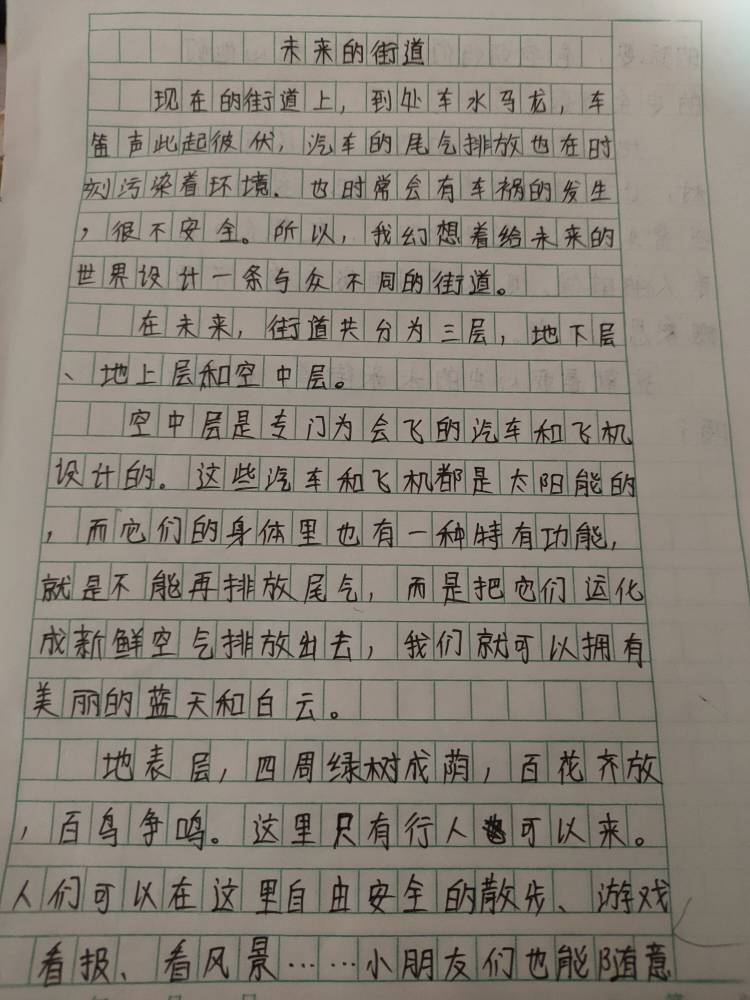 未来的街道
现在的街道上，到处车水马龙，车
笛声此起彼伏，汽车的尾气排放也在时
刻污染着环境、也时常会有车祸的发生
，很不安全。所以，我幻想着给未来的
世界设计一条与众不同的街道。
在未来，街道共分为三层，地下层
、地上层和空中层。
空中层是专门为会飞的汽车和飞机
设计的。这些汽车和飞机都是太阳能的
，而它们的身体里也有一种特有功能，
就是不能再排放尾气，而是把它们运化
成新鲜空气排放出去，我们就可以拥有
美丽的蓝天和白云。
地表层，四周绿树成荫，百花齐放
，百鸟争鸣。这里只有行人可以来。
人们可以在这里自由安全的散步、游戏
看报、看风景……小朋友们也能随意